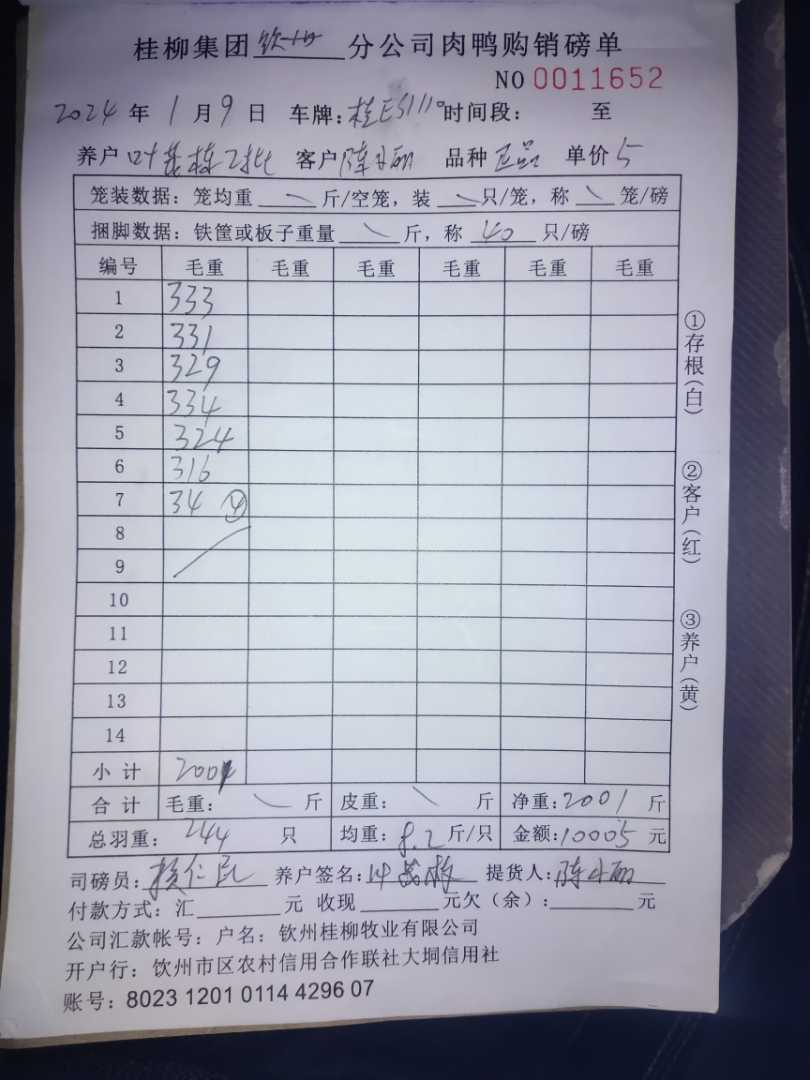 桂柳集团钦州分公司肉鸭购销磅单
NO 0011652
2024年1月9日 车牌:桂ES1110 时间段: 至
养户 叶茂栋 客户 陈小丽 品种 正品 单价 5
笼装数据:笼均重 斤/空笼,装 只/笼,称 笼/磅
捆脚数据:铁筐或板子重量 斤,称 40 只/磅
编号 毛重 毛重 毛重 毛重 毛重 毛重
1 333
2 331
3 329
4 334
5 324
6 316
7 34 ④
8
9
10
11
12
13
14
小计 2001
合计 毛重: 斤 皮重: 斤 净重:2001 斤
总羽重: 244 只 均重: 8.2 斤/只 金额:10005 元
司磅员: 养户签名:叶茂栋 提货人:陈小丽
付款方式:汇 元 收现 元欠(余): 元
公司汇款帐号:户名:钦州桂柳牧业有限公司
开户行:钦州市区农村信用合作联社大垌信用社
账号:8023 1201 0114 4296 07
①存根(白)
②客户(红)
③养户(黄)